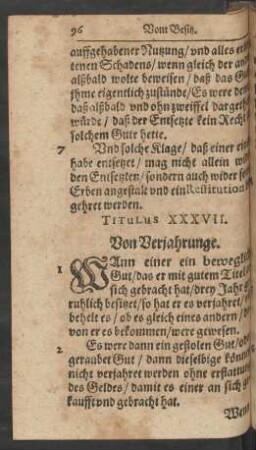 96 Vom Besitz.
auffgehabener Nutzung/ vnd alles er
tenen Schadens/ wenn gleich der and
alßbald wolte beweisen/ daß das Gut
jhme eigentlich zustände/ Es were denn
daß alßbald vnd ohn zweiffel dargeth
würde/ daß der Entsetzte kein Recht
solchem Gute hette.
7 Vnd solche Klage/ daß einer ein
habe entsetzet/ mag nicht allein wi
den Entsetzten/ sondern auch wider sei
Erben angestalt vnd ein Restitution
gehret werden.
TITULUS XXXVII.
Von Verjahrunge.
1 WAnn einer ein beweglich
Gut/ das er mit gutem Titel
sich gebracht hat/ drey Jahr g
ruhlich besitzet/ so hat er es verjahret/
behelt es/ ob es gleich eines andern/
von er es bekommen/ were gewesen.
2 Es were dann ein gestolen Gut/ od
geraubet Gut/ dann dieselbige könn
nicht verjahret werden ohne erstattun
des Geldes/ damit es einer an sich
kaufft vnd gebracht hat.
Wenn